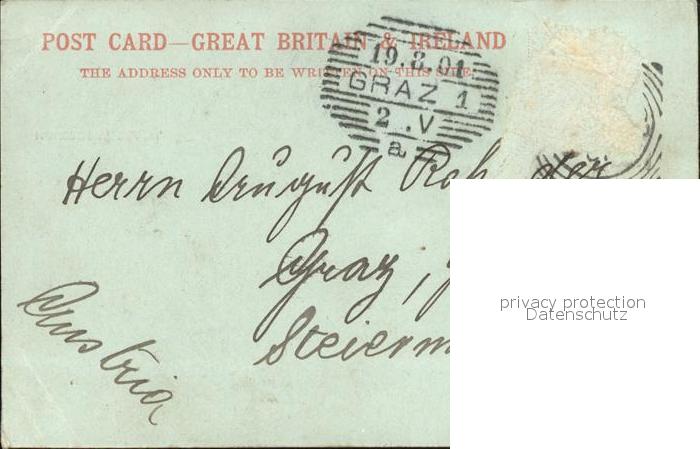 POST CARD—GREAT BRITAIN & IRELAND
THE ADDRESS ONLY TO BE WRITTEN ON THIS SIDE.
19.8.01
GRAZ 1
2 .V
a
Herrn August
Graz,
Steierm
Austria
privacy protection
Datenschutz